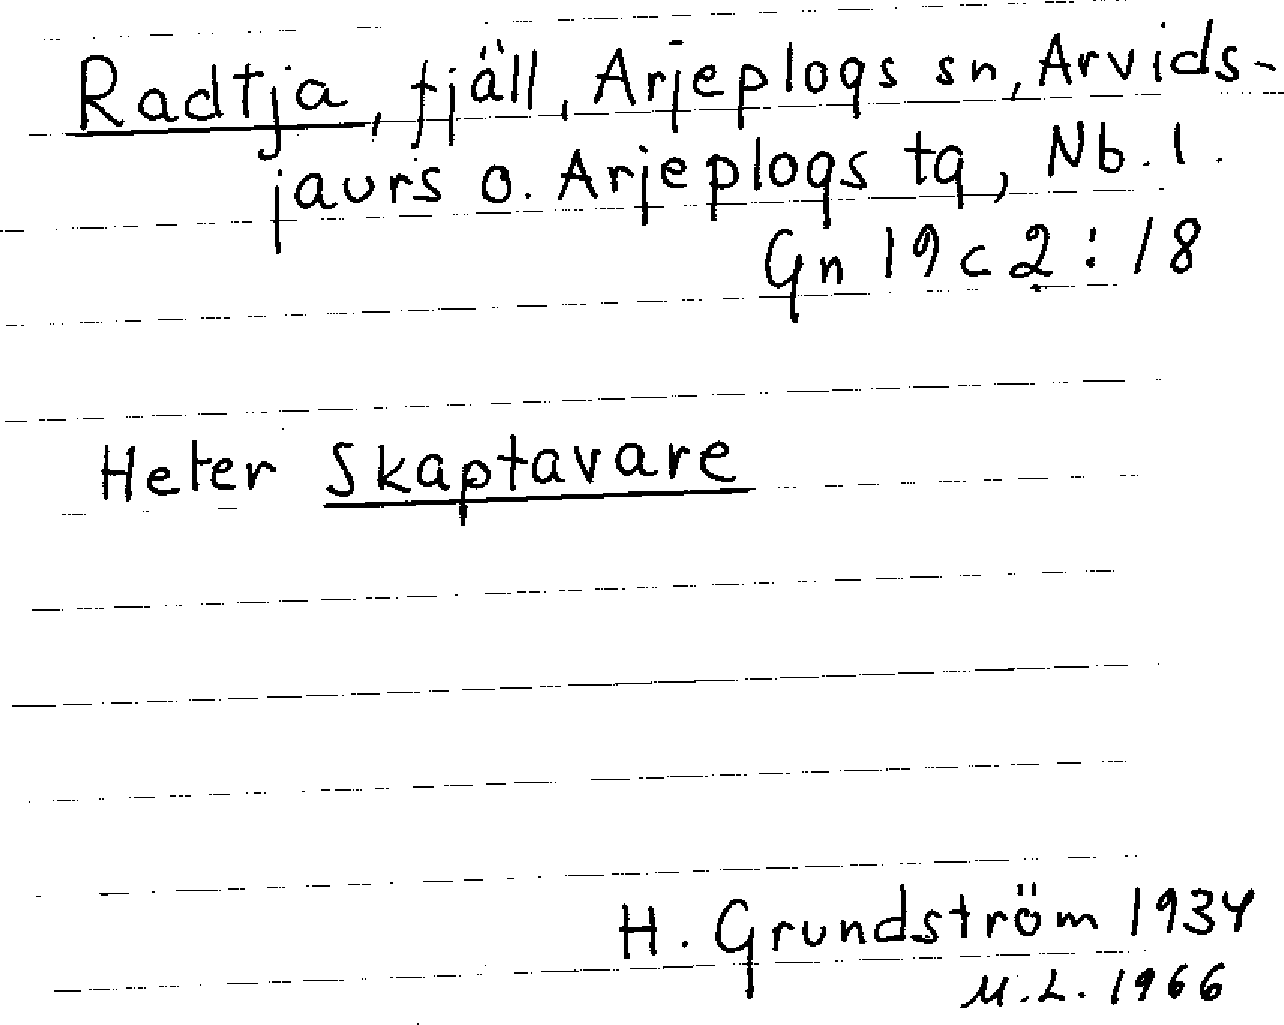 Radtja, fjäll, Arjeplogs sn, Arvids-
jaurs o. Arjeplogs tg, Nb. l.
Gn 19c2:18
Heter Skaptavare
H. Grundström 1934
M.L. 1966